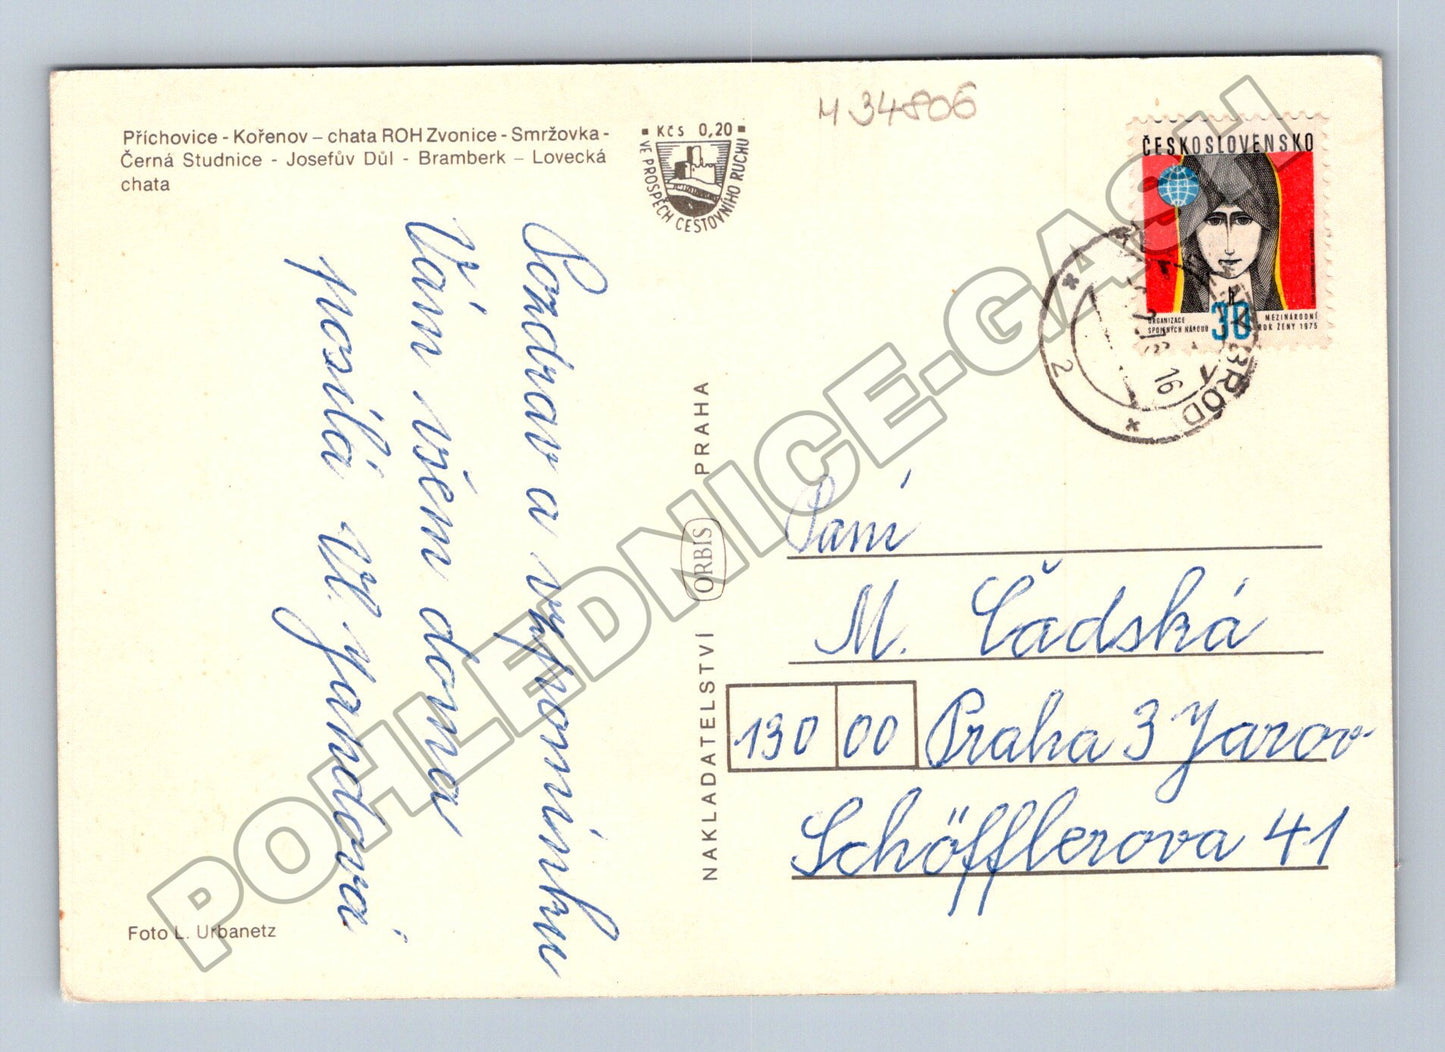 M 34806
Příchovice - Kořenov – chata ROH Zvonice - Smržovka -
Černá Studnice - Josefův Důl - Bramberk – Lovecká
chata
KČS 0,20
VE PROSPĚCH CESTOVNÍHO RUCHU
ČESKOSLOVENSKO
ORGANIZACE
SPOJENÝCH NÁRODŮ
30
MEZINÁRODNÍ
ROK ŽENY 1975
BROD
2
16
Pozdrav a vzpomínku
Vám všem doma
posílá Vl. Jandová
NAKLADATELSTVÍ ORBIS PRAHA
Paní
M. Čadská
130 00 Praha 3 Jarov
Schöfflerova 41
Foto L. Urbanetz
POHLEDNICE-GASH